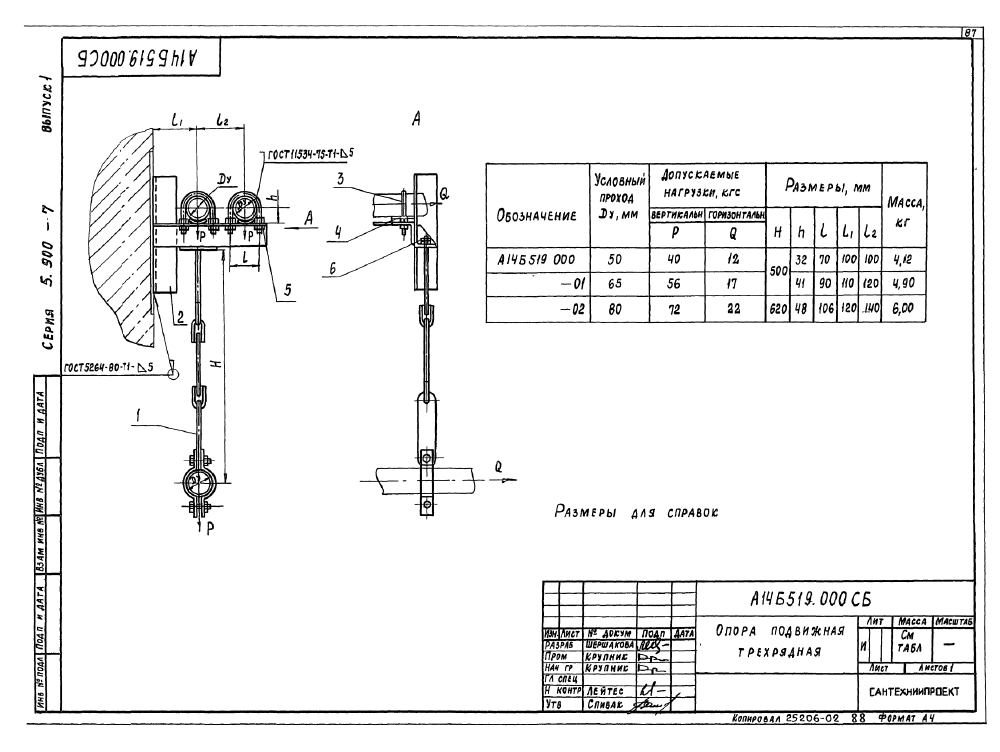 87
А14Б519.000СБ
СЕРИЯ 5.900-7 ВЫПУСК 1
L1 L2
А
ГОСТ 11534-75-Т1-◺5
Dу
h
А
P P
L
2
5
H
ГОСТ 5264-80-Т1-◺5
1
P
3
Q
4
6
Q
ОБОЗНАЧЕНИЕ УСЛОВНЫЙ ПРОХОД Dу, ММ ДОПУСКАЕМЫЕ НАГРУЗКИ, КГС РАЗМЕРЫ, ММ МАССА, КГ
ВЕРТИКАЛЬН ГОРИЗОНТАЛЬН
P Q H h L L1 L2
А14Б519 000 50 40 12 500 32 70 100 100 4,12
—01 65 56 17 41 90 110 120 4,90
—02 80 72 22 620 48 106 120 140 6,00
РАЗМЕРЫ ДЛЯ СПРАВОК
ИНВ № ПОДЛ ПОДП И ДАТА ВЗАМ ИНВ № ИНВ № ДУБЛ ПОДП И ДАТА
А14Б519.000 СБ
ИЗМ ЛИСТ № ДОКУМ ПОДП ДАТА
РАЗРАБ ШЕРШАКОВА
ПРОМ КРУПНИК
НАЧ ГР КРУПНИК
ГЛ СПЕЦ
Н КОНТР ЛЕЙТЕС
УТВ СПИВАК
ОПОРА ПОДВИЖНАЯ
ТРЕХРЯДНАЯ
ЛИТ МАССА МАСШТАБ
И СМ ТАБЛ —
ЛИСТ ЛИСТОВ 1
САНТЕХНИИПРОЕКТ
КОПИРОВАЛ 25206-02 88 ФОРМАТ А4